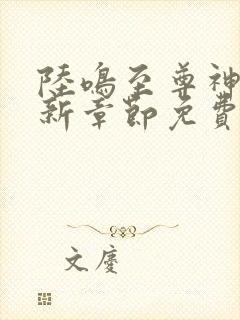 陸鳴至尊神
新章節免費
文慶